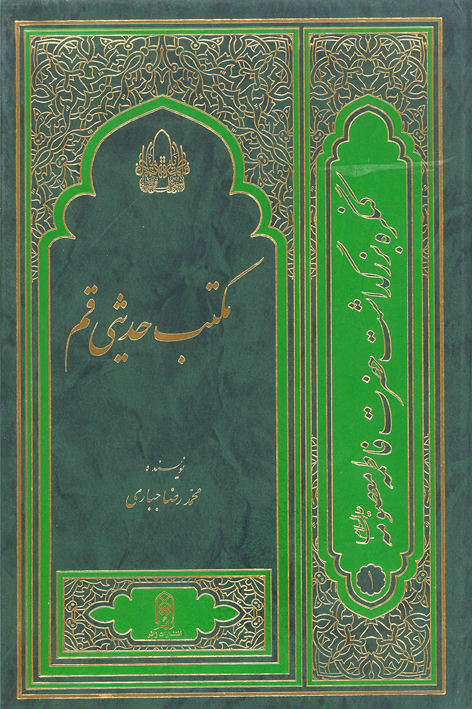 مکتب حدیثی قم
نویسنده
محمدرضا جباری
انتشارات زائر
کنگره بزرگداشت حضرت فاطمه معصومه علیهاالسلام
۱